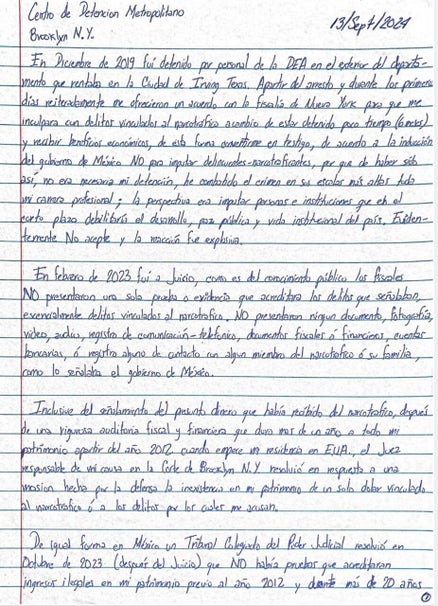 Centro de Detencion Metropolitano
13/Sept/2024
Brooklyn N.Y.
En Diciembre de 2019 fuí detenido por personal de la DEA en el exterior del departa-
mento que rentaba en la Ciudad de Irving Texas. Apartir del arresto y durante los primeros
días reiteradamente me ofrecieron un acuerdo con la fiscalía de Nueva York para que me
inculpara con delitos vinculados al narcotráfico acambio de estar detenido poco tiempo (6 meses)
y recibir beneficios económicos, de esta forma convertirme en testigo, de acuerdo a la inducción
del gobierno de México NO para imputar delincuentes-narcotraficantes, por que de haber sido
así, no era necesaria mi detención, he combatido el crimen en su escalas más altas toda
mi carrera profesional; la perspectiva era imputar personas e instituciones que en el
corto plazo debilitaría el desarrollo, paz pública y vida institucional del país. Eviden-
temente No acepte y la reacción fue explosiva.
En febrero de 2023 fuí a Juicio, como es del conocimiento público los fiscales
NO presentaron una sola prueba o evidencia que acreditara los delitos que señalaban,
esencialmente delitos vinculados al narcotrafico. NO presentaron ningun documento, fotografía,
video, audio, registro de comunicación-telefonico, documentos fiscales ó financieros, cuentas
bancarias, ó registro alguno de contacto con algun miembro del narcotrafico ó su familia,
como lo señalaba el gobierno de México.
Inclusive del señalamiento del presunto dinero que había recibido del narcotrafico, después
de una rigurosa auditoria fiscal y financiera que duro mas de un año a todo mi
patrimonio apartir del año 2012 cuando empece mi residencia en EUA, el Juez
responsable de mi causa en la Corte de Brooklyn N.Y resolvió en respuesta a una
mosion hecha por la defensa la inexistencia en mi patrimonio de un solo dolar vinculado
al narcotráfico ó a los delitos por los cuales me acusan.
De igual forma en México un Tribunal Colegiado del Poder Judicial resolvió en
Octubre de 2023 (después del Juicio) que NO había pruebas que acreditaran
ingresos ilegales en mi patrimonio previo al año 2012 y durante más de 20 años
1